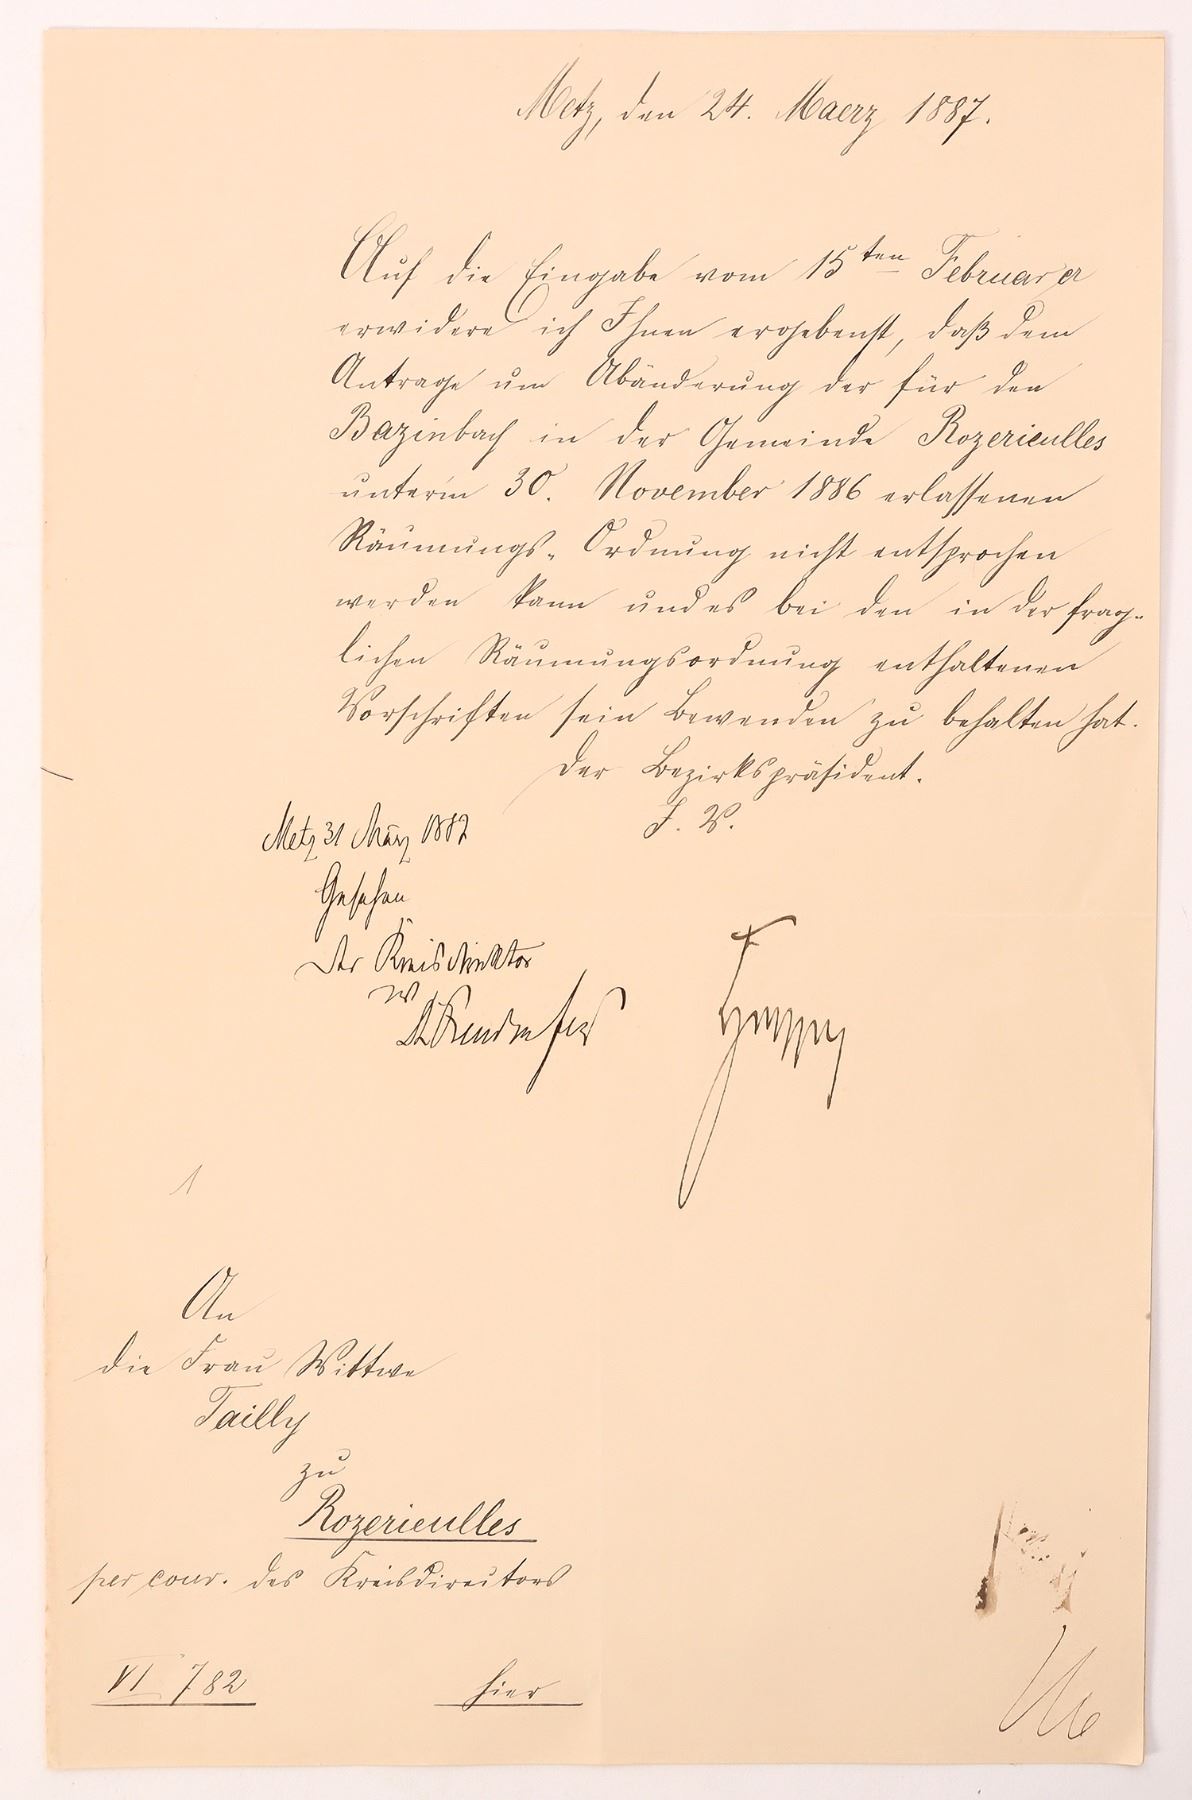 Metz, den 24. Maerz 1887.
Auf die Eingabe vom 15ten Februar cr
erwidere ich Ihnen ergebenst, daß dem
Antrage um Abänderung der für den
Bazinbach in der Gemeinde Rozerieulles
unterm 30. November 1886 erlassenen
Räumungs-Ordnung nicht entsprochen
werden kann und es bei den in der frag-
lichen Räumungsordnung enthaltenen
Vorschriften sein Bewenden zu behalten hat.
Der Bezirkspräsident.
I. V.
Metz 31 März 1887
Gesehen
Der Kreisdirektor
An
die Frau Wittwe
Tailly
zu
Rozerieulles
per cour. des Kreisdirectors
VI 782 hier